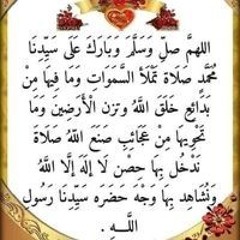 اللهمَّ صلِّ وَسَلَّمَ وَبَارَكَ عَلَى سَيِّدِنَا
مُحَمَّدٍ صَلَاةً تَمْلَأُ السَّمَوَاتِ وَمَا فِيهَا مِنْ
بَدَائِعِ خَلْقِ اللَّهِ وَتَزِنُ الْأَرَضِينَ وَمَا
تَحْوِيهَا مِنْ عَجَائِبِ صَنَعَ اللَّهُ صَلَاةً
نَدْخُلُ بِهَا حِصْنَ لَا إِلَهَ إِلَّا اللَّهُ
وَنُشَاهِدُ بِهَا وَجْهَ حَضْرَةِ سَيِّدِنَا رَسُولِ
اللَّهِ .